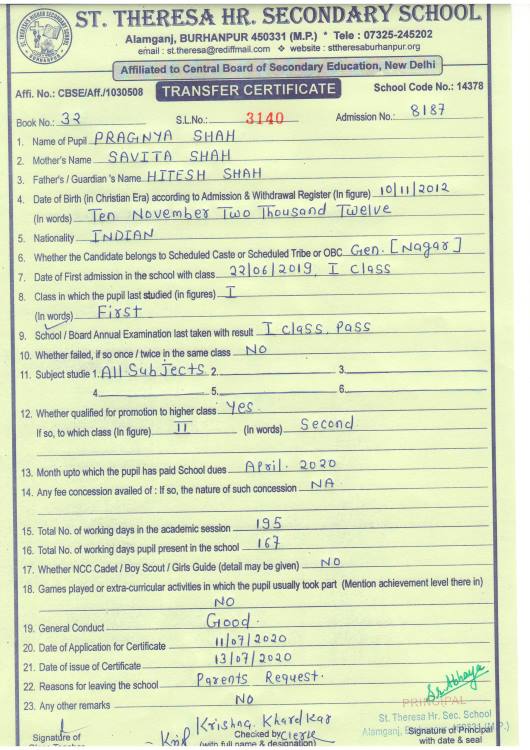 ST. THERESA HR. SECONDARY SCHOOL
Alamganj, BURHANPUR 450331 (M.P.) * Tele : 07325-245202
email : st.theresa@rediffmail.com ❖ website : sttheresaburhanpur.org
Affiliated to Central Board of Secondary Education, New Delhi
Affi. No.: CBSE/Aff./1030508 TRANSFER CERTIFICATE School Code No.: 14378
Book No.: 32 S.L.No.: 3140 Admission No.: 8187
1. Name of Pupil PRAGNYA SHAH
2. Mother's Name SAVITA SHAH
3. Father's / Guardian 's Name HITESH SHAH
4. Date of Birth (in Christian Era) according to Admission & Withdrawal Register (In figure) 10/11/2012
(In words) Ten November Two Thousand Twelve
5. Nationality INDIAN
6. Whether the Candidate belongs to Scheduled Caste or Scheduled Tribe or OBC Gen. [Nagar]
7. Date of First admission in the school with class 22/06/2019, I class
8. Class in which the pupil last studied (in figures) I
(In words) First
9. School / Board Annual Examination last taken with result I class, Pass
10. Whether failed, if so once / twice in the same class NO
11. Subject studie 1. All Subjects 2. 3.
4. 5. 6.
12. Whether qualified for promotion to higher class Yes.
If so, to which class (In figure) II (In words) Second
13. Month upto which the pupil has paid School dues April. 2020
14. Any fee concession availed of : If so, the nature of such concession NA
15. Total No. of working days in the academic session 195
16. Total No. of working days pupil present in the school 167
17. Whether NCC Cadet / Boy Scout / Girls Guide (detail may be given) NO
18. Games played or extra-curricular activities in which the pupil usually took part (Mention achievement level there in)
NO
19. General Conduct Good.
20. Date of Application for Certificate 11/07/2020
21. Date of issue of Certificate 13/07/2020
22. Reasons for leaving the school Parents Request.
23. Any other remarks NO
Sr. Abhaya
PRINCIPAL
St. Theresa Hr. Sec. School
Krishna Kharolkar
Signature of Checked by Clerk Signature of Principal
(with full name & designation) with date & seal